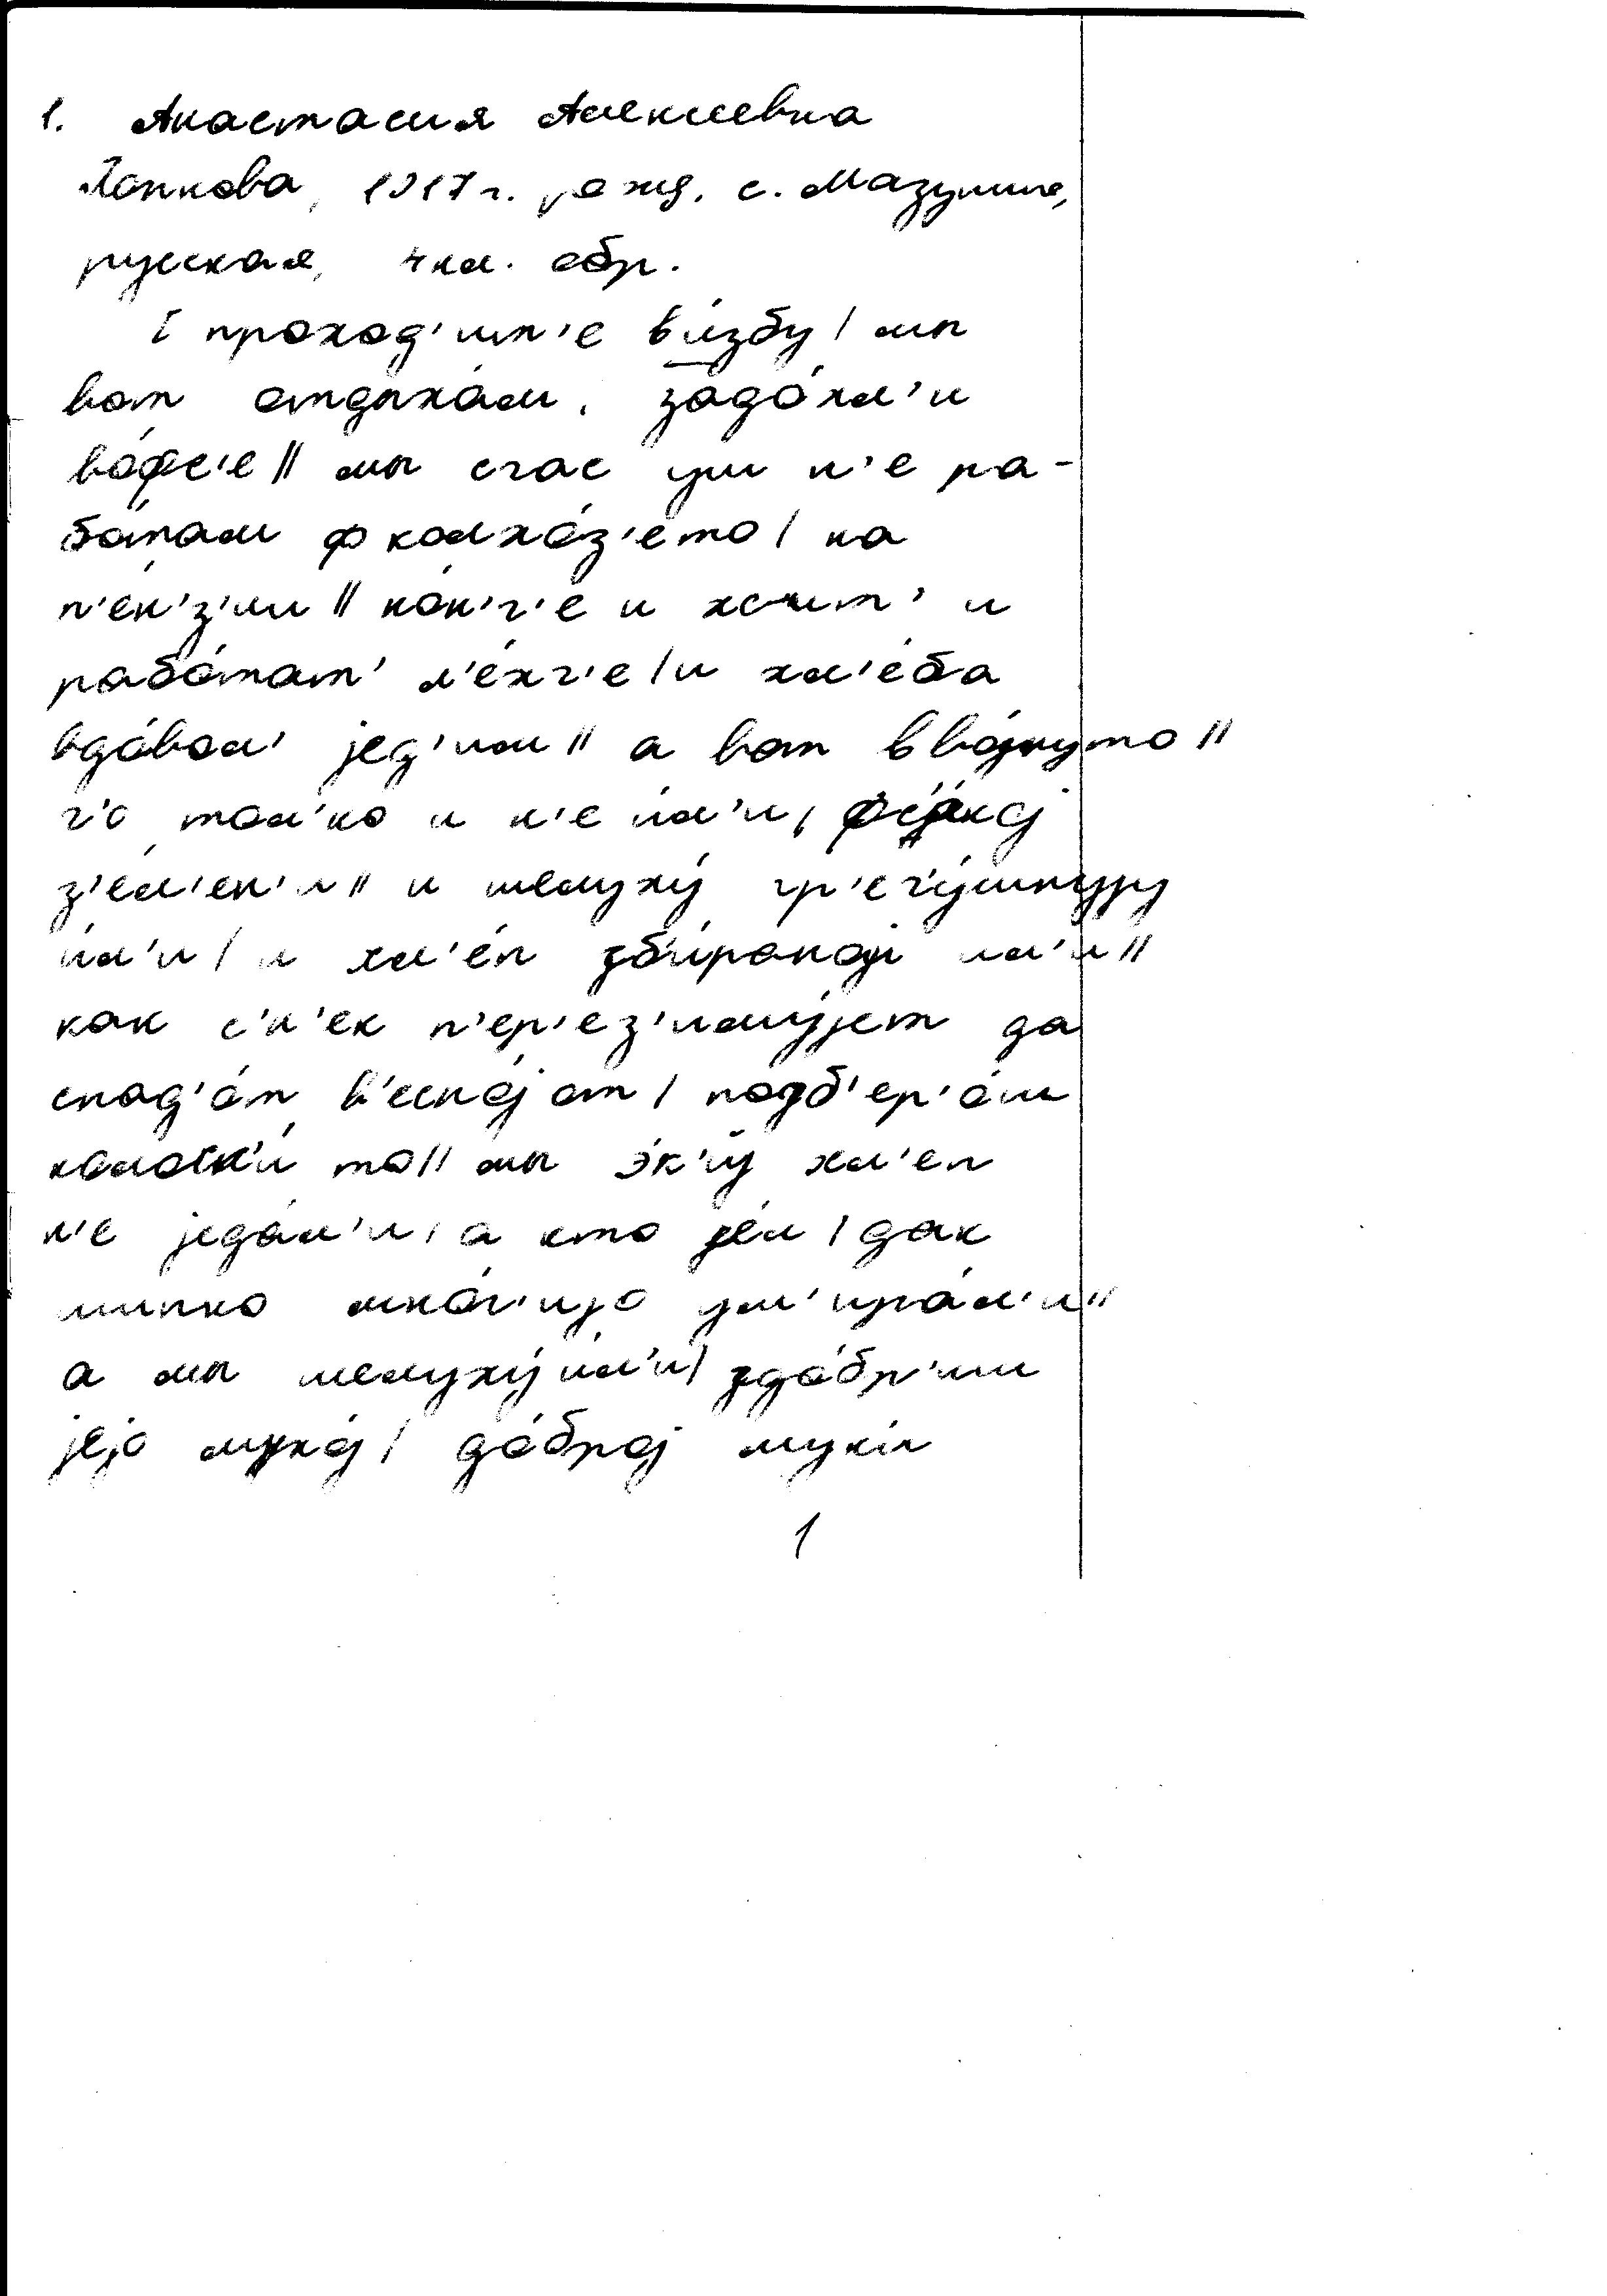 1. Анастасия Алексеевна
Попкова, 1917 г. рожд. с. Мазунино,
русская, 4 кл. обр.
[ проход'ит'е в и́збу / мы
вот отдыха́м. задо́хл'и
во́фс'е // мы счас уш н'е ра-
бо́там ф колхо́з'ето / на
п'е́н'з'ии // но́н'ч'е и жыт' и
рабо́тат' л'е́хч'е / и хл'е́ба
вдо́вол' jед'им // а вот в во́jнуто //
ч'о тол'ко и н'е и́л'и, фс'а́коj
з'е́л'ен'и // и шелуху́ гр'еч'у́шнуjу
и́л'и / и хл'еп зб'и́раноj и́л'и //
как с'н'ек п'ер'ез'иму́jет да
спад'о́т в'есно́j от / подб'ер'о́м
колоск'и́ то // мы э́к'иj хл'еп
н'е jеда́л'и, а кто jел / дак
шыпко мно́г'иjо ум'ира́л'и //
а мы шелуху́ и́л'и / здо́бр'им
jejо муко́j / до́броj муки́
1